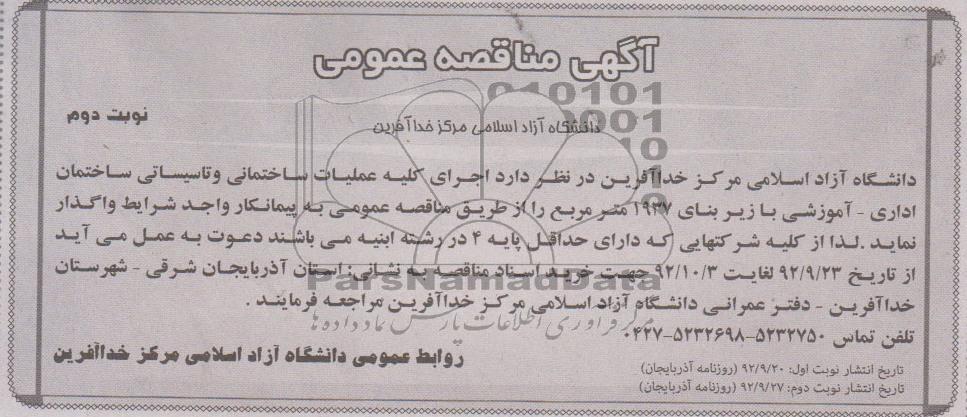 آگهی مناقصه عمومی
نوبت دوم
دانشگاه آزاد اسلامی مرکز خداآفرین
دانشگاه آزاد اسلامی مرکز خداآفرین در نظر دارد اجرای کلیه عملیات ساختمانی وتاسیساتی ساختمان
اداری - آموزشی با زیر بنای ۱۹۳۷ متر مربع را از طریق مناقصه عمومی به پیمانکار واجد شرایط واگذار
نماید .لذا از کلیه شرکتهایی که دارای حداقل پایه ۴ در رشته ابنیه می باشند دعوت به عمل می آید
از تاریخ ۹۲/۹/۲۳ لغایت ۹۲/۱۰/۳ جهت خرید اسناد مناقصه به نشانی: استان آذربایجان شرقی - شهرستان
خداآفرین - دفتر عمرانی دانشگاه آزاد اسلامی مرکز خداآفرین مراجعه فرمایند .
تلفن تماس ۵۲۳۲۷۵۰-۵۲۳۲۶۹۸-۰۴۲۷
روابط عمومی دانشگاه آزاد اسلامی مرکز خداآفرین
تاریخ انتشار نوبت اول: ۹۲/۹/۲۰ (روزنامه آذربایجان)
تاریخ انتشار نوبت دوم: ۹۲/۹/۲۷ (روزنامه آذربایجان)
ParsNamadData
مرکز فرآوری اطلاعات پارس نماد داده ها